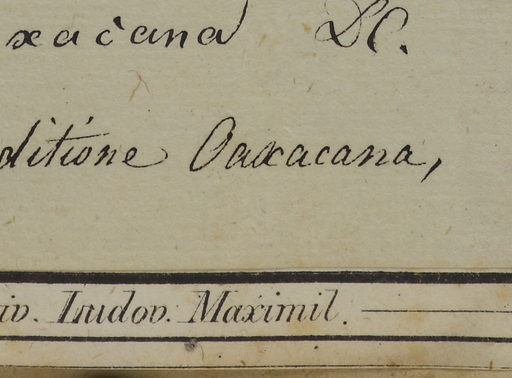 xacana DC.
ditione Oaxacana,
iv. Ludov. Maximil.